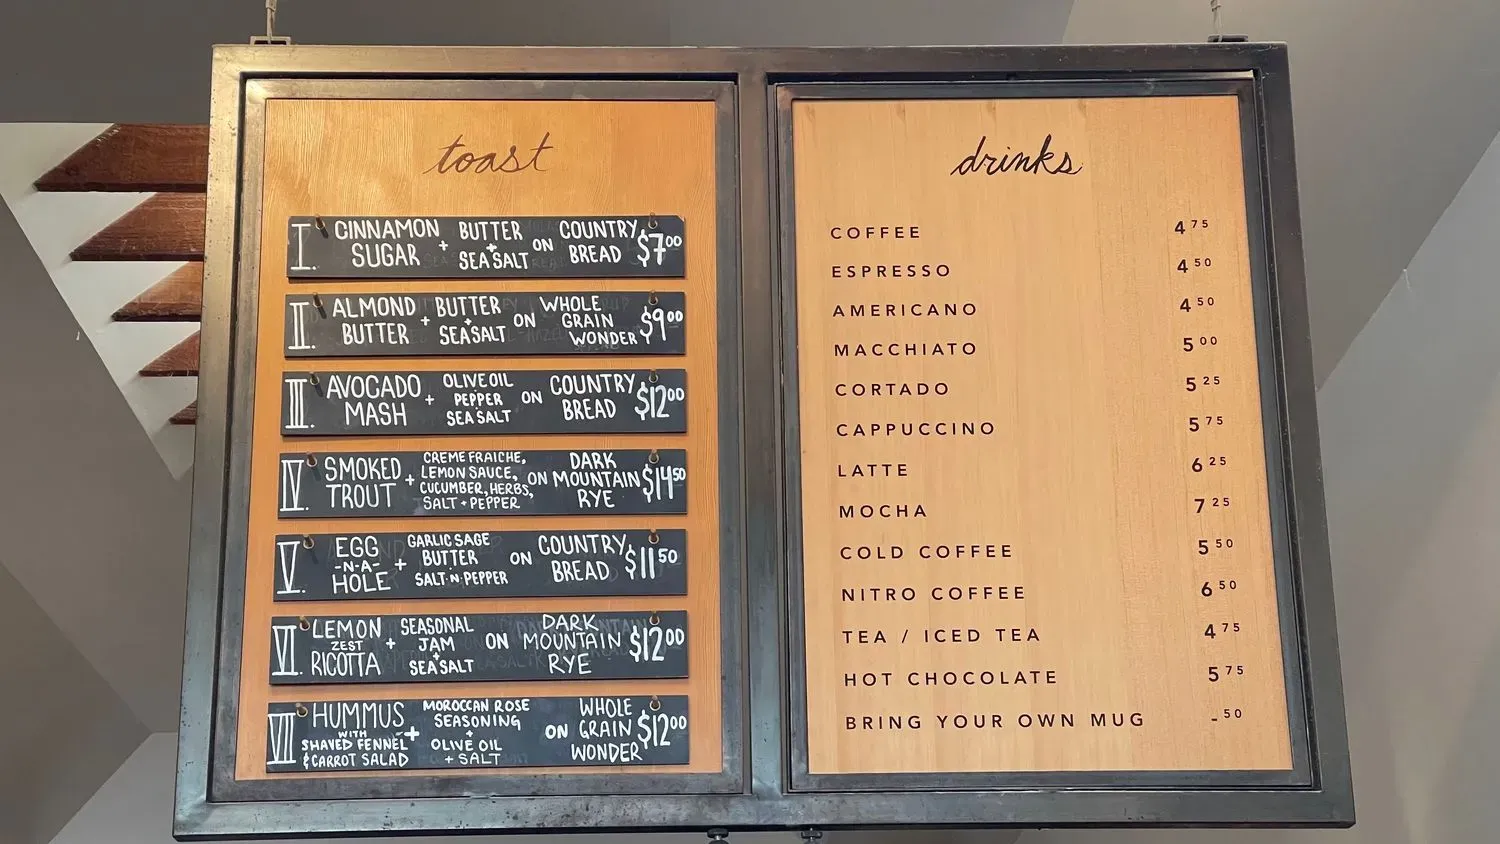 toast
I. CINNAMON SUGAR + BUTTER + SEA SALT ON COUNTRY BREAD $7.00
II. ALMOND BUTTER + BUTTER + SEA SALT ON WHOLE GRAIN WONDER $9.00
III. AVOCADO MASH + OLIVE OIL PEPPER SEA SALT ON COUNTRY BREAD $12.00
IV. SMOKED TROUT + CREME FRAICHE, LEMON SAUCE, CUCUMBER, HERBS, SALT + PEPPER ON DARK MOUNTAIN RYE $14.50
V. EGG -N-A- HOLE + GARLIC SAGE BUTTER SALT-N-PEPPER ON COUNTRY BREAD $11.50
VI. LEMON ZEST RICOTTA + SEASONAL JAM + SEA SALT ON DARK MOUNTAIN RYE $12.00
VII. HUMMUS WITH SHAVED FENNEL & CARROT SALAD + MOROCCAN ROSE SEASONING + OLIVE OIL + SALT ON WHOLE GRAIN WONDER $12.00
drinks
COFFEE 4 75
ESPRESSO 4 50
AMERICANO 4 50
MACCHIATO 5 00
CORTADO 5 25
CAPPUCCINO 5 75
LATTE 6 25
MOCHA 7 25
COLD COFFEE 5 50
NITRO COFFEE 6 50
TEA / ICED TEA 4 75
HOT CHOCOLATE 5 75
BRING YOUR OWN MUG - 50